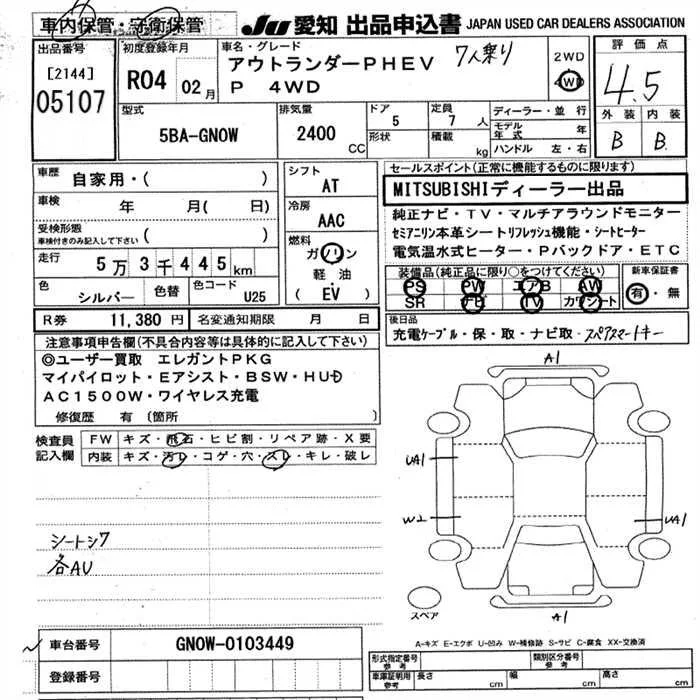 車内保管・守衛保管
JU 愛知 出品申込書 JAPAN USED CAR DEALERS ASSOCIATION
出品番号
[2144]
05107
初度登録年月
R04 02月
車名・グレード
アウトランダーPHEV 7人乗り
P 4WD
2WD
4WD
評価点
4.5
外装 内装
B B
型式
5BA-GN0W
排気量
2400 CC
ドア
5
形状
定員
7人
積載
kg
ディーラー・並行
モデル年式 年
ハンドル 左・右
車歴
自家用・( )
車検 年 月( 日)
受検形態
車検付きのみ記入して下さい ( )
走行 5万3千445km
色 シルバー 色替 色コード U25
シフト
AT
冷房
AAC
燃料
ガソリン
軽油
( EV )
R券 11,380円 名変通知期限 月 日
セールスポイント(正常に機能するものに限ります)
MITSUBISHIディーラー出品
純正ナビ・TV・マルチアラウンドモニター
セミアニリン本革シートリフレッシュ機能・シートヒーター
電気温水式ヒーター・Pバックドア・ETC
装備品(純正品に限り○をつけてください)
PS PW エアB AW
SR ナビ TV カワシート
新車保証書
有・無
後日品
充電ケーブル・保・取・ナビ取・スペアスマートキー
注意事項申告欄(不具合内容等は具体的に記入して下さい)
◎ユーザー買取 エレガントPKG
マイパイロット・Eアシスト・BSW・HUD
AC1500W・ワイヤレス充電
修復歴 有 〔箇所
検査員記入欄
FW キズ・飛石・ヒビ割・リペア跡・X要
内装 キズ・汚レ・コゲ・穴・スレ・キレ・破レ
シートシワ
各AU
A1
UA1
W2
UA1
A1
スペア
A-キズ E-エクボ U-凹み W-補修跡 S-サビ C-腐食 XX-交換済
車台番号 GN0W-0103449
登録番号
形式指定番号 参考
類別区分番号 参考
車庫証明用 参考 長さ cm 幅 cm 高さ cm